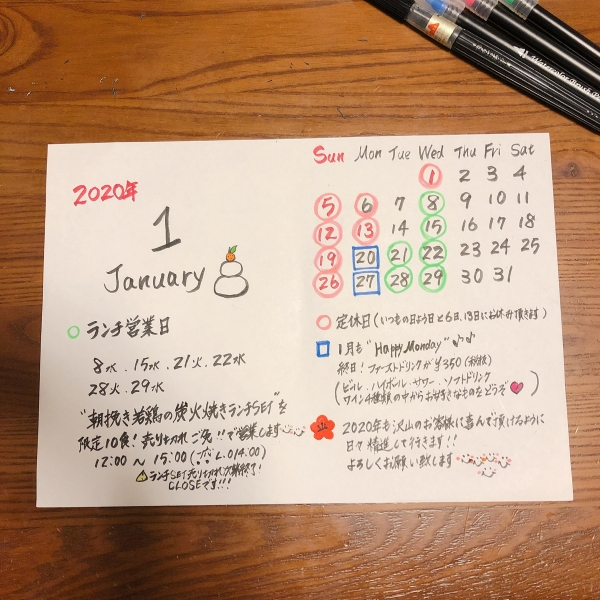 2020年
1
January
○ランチ営業日
8水.15水.21火.22水
28火.29水
"朝挽き若鶏の炭火焼きランチSET"を
限定10食!売り切れご免!!で営業します
12:00〜15:00(フードL.O14:00)
ランチSET売り切れ次第終了!
CLOSEです!!!
Sun Mon Tue Wed Thu Fri Sat
1 2 3 4
5 6 7 8 9 10 11
12 13 14 15 16 17 18
19 20 21 22 23 24 25
26 27 28 29 30 31
○定休日(いつもの日よう日と6日、13日にお休み頂きます)
□1月も"Happy Monday"♪♪
終日!ファーストドリンクが¥350(税抜)
(ビール.ハイボール.サワー.ソフトドリンク
ワイン4種類の中からお好きなものをどうぞ♥)
2020年も沢山のお客様に喜んで頂けるように
日々精進して行きます!!
よろしくお願い致します
Watercolor Brush